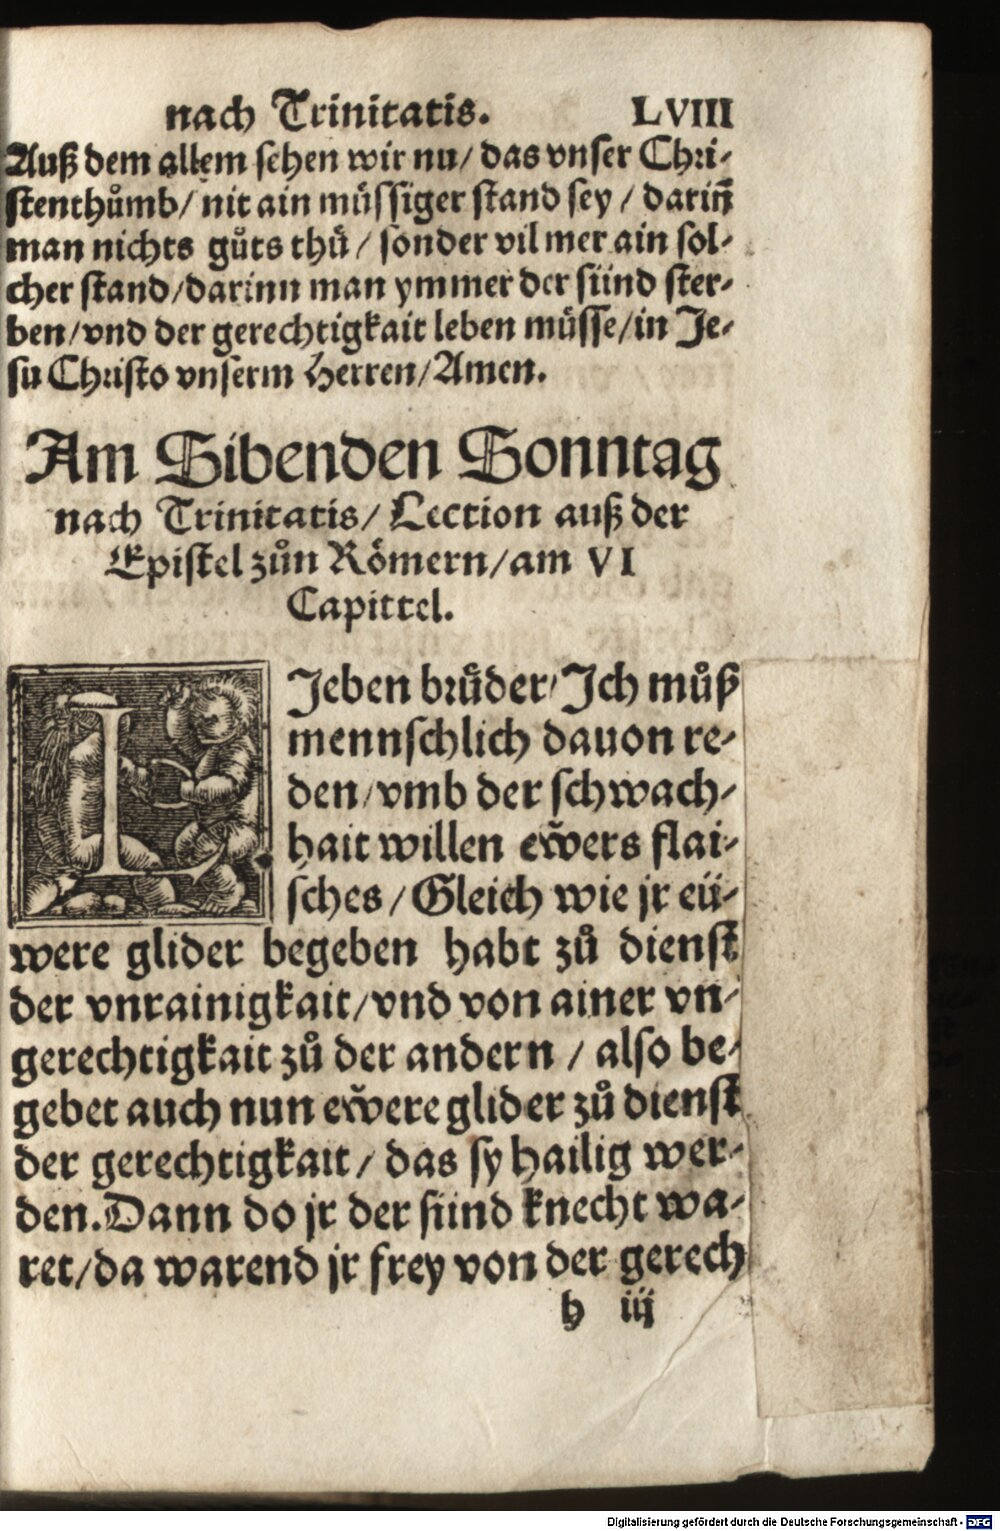 nach Trinitatis. LVIII
Auß dem allem sehen wir nu/ das vnser Chri-
stenthůmb/ nit ain müssiger stand sey / darin̄
man nichts gůts thů / sonder vil mer ain sol-
cher stand/darinn man ymmer der sünd ster-
ben/vnd der gerechtigkait leben müsse/in Je-
su Christo vnserm Herren/Amen.
Am Sibenden Sonntag
nach Trinitatis/ Lection auß der
Epistel zůn Römern/am VI
Capittel.
LJeben brůder/Jch můß
mennschlich dauon re-
den/vmb der schwach-
hait willen ew̆ers flai-
sches / Gleich wie jr eü-
were glider begeben habt zů dienst
der vnrainigkait/vnd von ainer vn-
gerechtigkait zů der andern / also be-
gebet auch nun ew̆ere glider zů dienst
der gerechtigkait/ das sy hailig wer-
den.Dann do jr der sünd knecht wa-
ret/da warend jr frey von der gerech
h iij
Digitalisierung gefördert durch die Deutsche Forschungsgemeinschaft - DFG